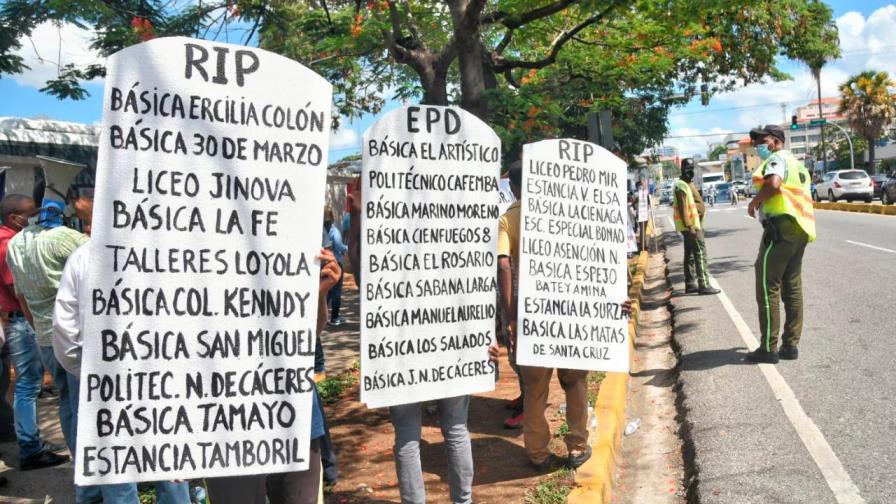 RIP
BÁSICA ERCILIA COLÓN
BÁSICA 30 DE MARZO
LICEO JINOVA
BÁSICA LA FE
TALLERES LOYOLA
BÁSICA COL. KENNDY
BÁSICA SAN MIGUEL
POLITEC. N. DE CÁCERES
BÁSICA TAMAYO
ESTANCIA TAMBORIL
EPD
BÁSICA EL ARTÍSTICO
POLITÉCNICO CAFEMBA
BÁSICA MARINO MORENO
BÁSICA CIENFUEGOS 8
BÁSICA EL ROSARIO
BÁSICA SABANA LARGA
BÁSICA MANUEL AURELIO
BÁSICA LOS SALADOS
BÁSICA J. N. DE CÁCERES
RIP
LICEO PEDRO MIR
ESTANCIA V. ELSA
BÁSICA LA CIENAGA
ESC. ESPECIAL BONAO
LICEO ASENCIÓN N.
BASICA ESPEJO
BATEY AMINA
ESTANCIA LA SURZA
BASICA LAS MATAS
DE SANTA CRUZ